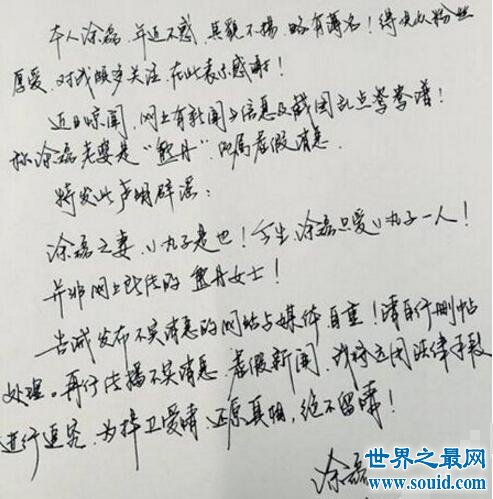 本人涂磊,年近不惑,其貌不扬,略有薄名!得众从粉丝
厚爱,对我颇多关注,在此表示感谢!
近日惊闻,网上有新闻与信息及截图乱点鸳鸯谱!
称涂磊老婆是“熊丹”,此属虚假消息。
特发此声明辟谣:
涂磊之妻,小丸子是也!今生,涂磊只爱小丸子一人!
并非网上所传的熊丹女士!
告诫发布不实消息的网站与媒体自重!请自行删帖
处理。再行传播不实消息、虚假新闻,我将运用法律手段
进行追究,为捍卫爱情、还原真相,绝不留情!
涂磊
世界之最网
www.souid.com